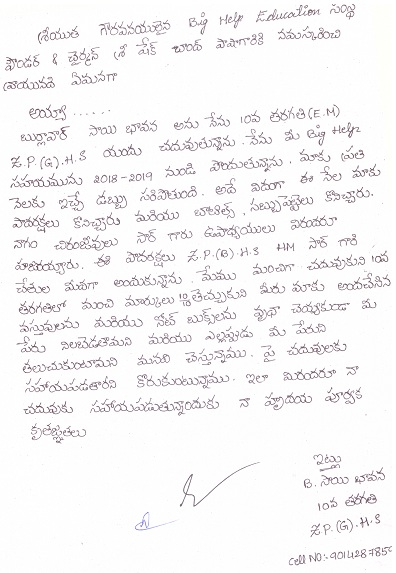 శ్రీయుత గౌరవనీయులైన Big Help Education సంస్థ
ఫౌండర్ & ఛైర్మన్ శ్రీ షేక్ చాంద్ పాషాగారికి నమస్కరించి
వ్రాయునది ఏమనగా
అయ్యా ......
బుర్లావార్ సాయి భావన అను నేను 10వ తరగతి (E.M)
Z.P.(G).H.S యందు చదువుతున్నాను. నేను మీ Big Help
సహాయమును 2018-2019 నుండి పొందుతున్నాను. మాకు ప్రతి
నెలకు ఇచ్చే డబ్బు సరిపోతుంది. అదే విధంగా ఈ నెల మాకు
పాదరక్షలు కొనిచ్చారు మరియు బాటిల్స్, సబ్బుపెట్టెలు కొనిచ్చారు.
నాగం చిరంజీవులు సార్ గారు ఉపాధ్యాయులు వీరందరూ
హాజరయ్యారు. ఈ పాదరక్షలు Z.P.(B).H.S HM సార్ గారి
చేతుల మీదగా అందుకున్నాను. మేము మంచిగా చదువుకుని 10వ
తరగతిలో మంచి మార్కులు తెచ్చుకుని మీరు మాకు అందచేసిన
వస్తువులను మరియు నోట్ బుక్స్‌లను వృథా చెయ్యకుండా మీ
పేరు నిలబెడతామని మరియు ఎల్లప్పుడు మీ పేరుని
తలుచుకుంటామని మనవి చేస్తున్నాము. పై చదువులకు
సహాయపడతారని కోరుకుంటున్నాము. ఇలా మీరందరూ నా
చదువుకు సహాయపడుతున్నందుకు నా హృదయ పూర్వక
కృతజ్ఞతలు
ఇట్లు
B. సాయి భావన
10వ తరగతి
Z.P.(G).H.S
Cell NO:- 9014287850